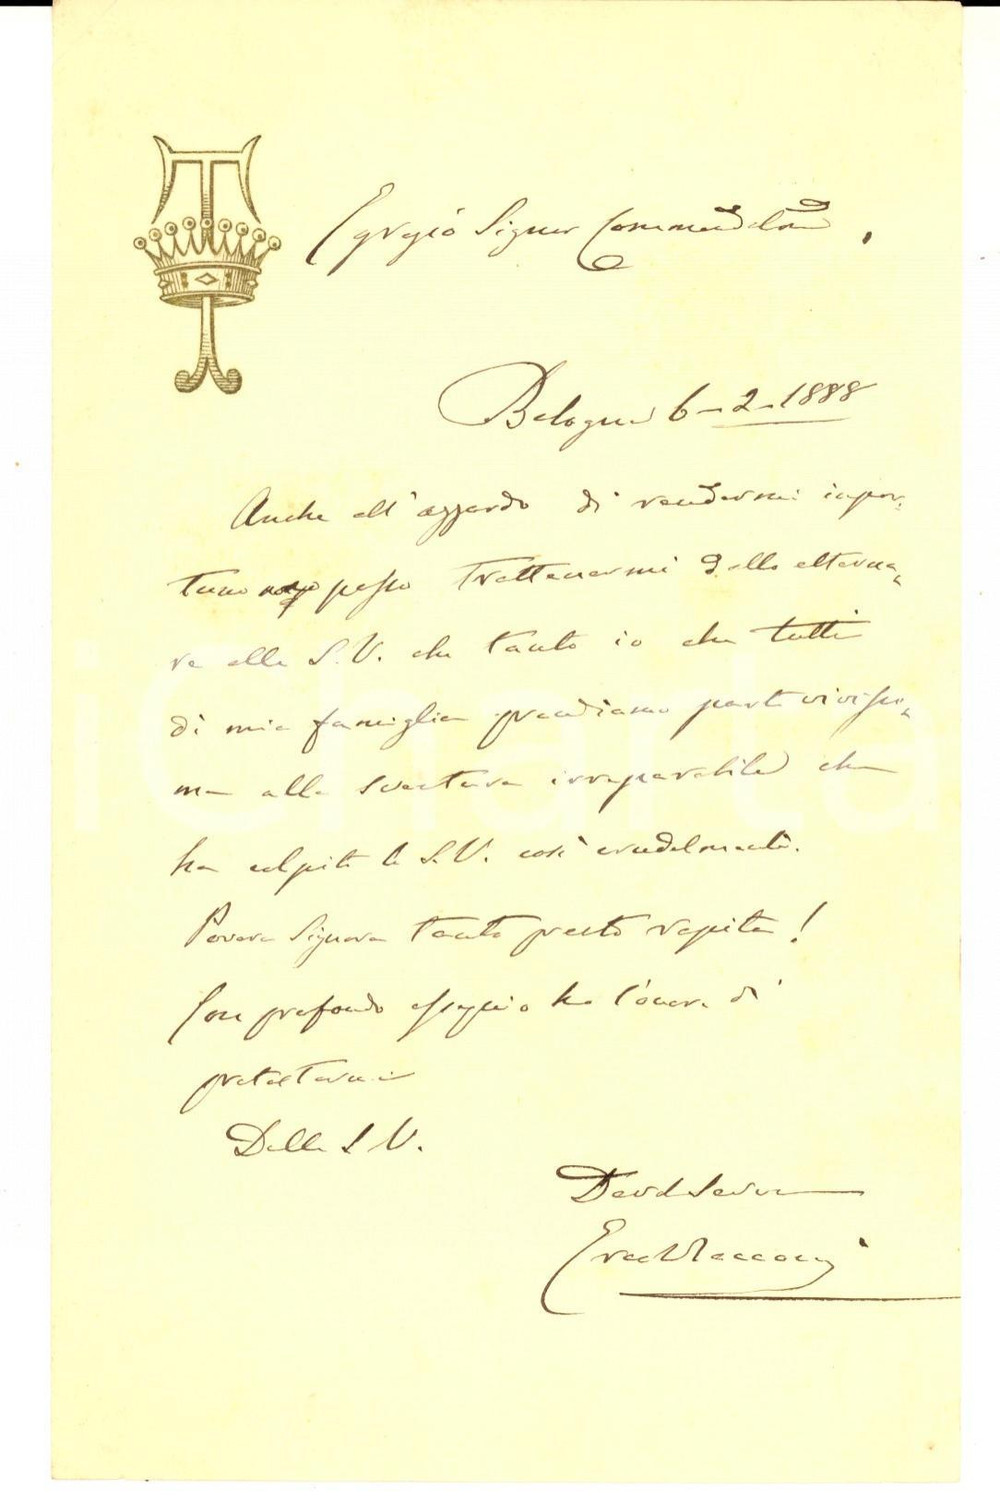 Egregio Signor Commendatore,
Bologna 6-2-1888
Anche all'azzardo di rendermi impor-
tuno non posso trattenermi dallo esterna-
re alla S.V. che tanto io che tutti
di mia famiglia prendiamo parte vivissi-
ma alla sventura irreparabile che
ha colpito la S.V. così crudelmente.
Povera Signora tanto presto rapita!
Con profondo ossequio ho l'onore di
protestarmi
Della S V.
Dev Servo